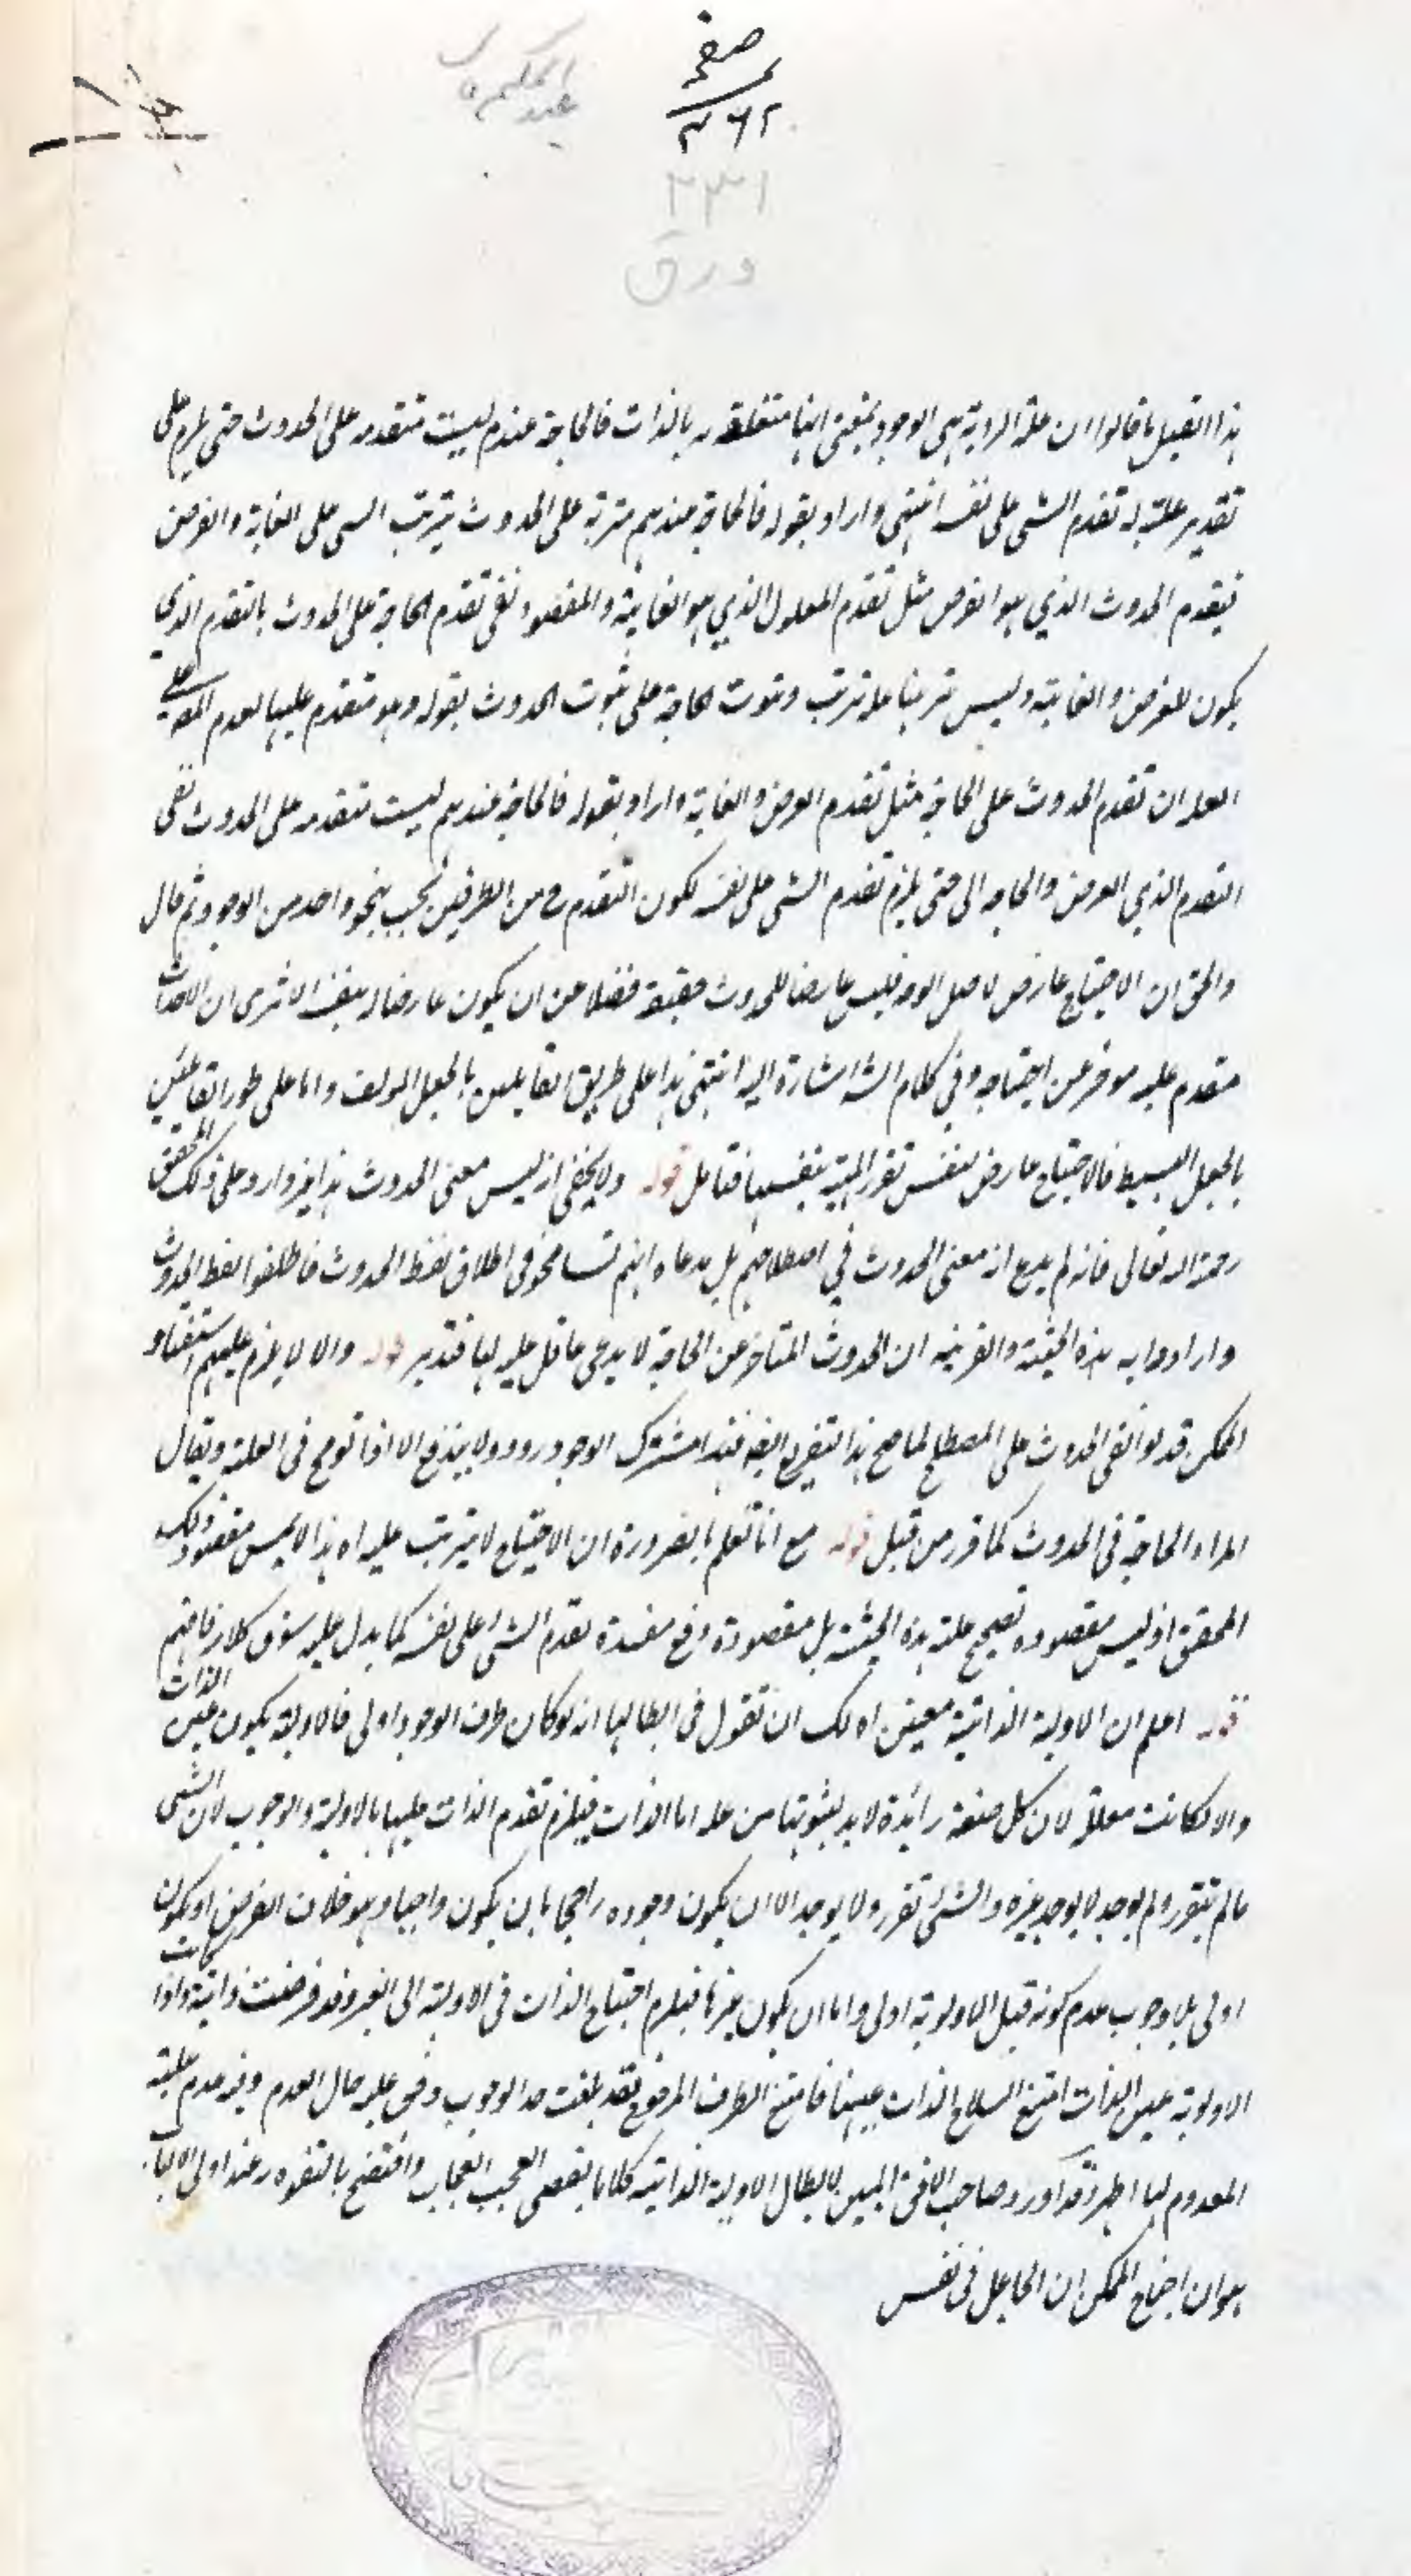 صفحہ
۳۶۲
عبد الحكيم
۲۳۱
ورق
هذا القبيل ما قالوا ان علة الروية هى الوجود بمعنى انها متعلقة به بالذات فالحاجة عندهم ليست متقدمه على الحدوث حتى يلزم على
تقدير علته له تقدم الشى على نفسه انتهى واراد بقوله فالحاجة عندهم مترتبة على الحدوث ترتب الشى على الغاية والغرض
تقدم الحدوث الذي هو الغرض مثل تقدم المعلول الذي هو الغاية والمقصود نفى تقدم الحاجة على الحدوث بالتقدم الذي
يكون للغرض والغاية وليس ترتبها عليه ترتب وثبوت الحاجة على ثبوت الحدوث بقوله وهو متقدم عليها لعدم
ان تقدم الحدوث على الحاجة مثل تقدم الغرض والغاية واراد بقوله فالحاجة عندهم ليست متقدمه على الحدوث نفى
التقدم الذي الغرض والحاجه الى حتى يلزم تقدم الشى على نفسه لكون التقدم ح من الطرفين بحسب نحو واحد من الوجود ثم قال
والحق ان الاحتياج عارض لاصل الوجود فليس عارضا للحدوث حقيقة فضلا عن ان يكون عارضا له بنفسه الا ترى ان الاحداث
متقدم عليه موخر عن احتياجه وفى كلام الش اشارة اليه انتهى هذا على طريق القايلين بالجعل المولف واما على طور القايلين
بالجعل البسيط فالاحتياج عارض لنفس تقرر الماهية بنفسها فتامل قوله ولا يخفى انه ليس معنى الحدوث هذا غير وارد على ذلك المحقق
رحمة الله تعالى فانه لم يدع انه معنى الحدوث في اصطلاحهم بل مدعاه انهم تسامحوا فى اطلاق لفظ الحدوث فاطلقوا لفظ الحدوث
وارادوا به هذه الحيثية والقرينه ان الحدوث المتاخر عن الحاجة لا يدعى عاقل عليه لها فتدبر قوله والا لا يلزم عليهم استغناء
الممكن قد لو انفى الحدوث على المصطلح لما صح هذا التفريع ايضه فهذا مشترك الوجود وروده ولا يندفع الا اذا توسح فى العلة ويقال
المراد الحاجة فى الحدوث كما قرر من قبل قوله مع انا نعلم بالضرورة ان الاحتياج لا يترتب عليه اه هذا لا يمس مقصود ذلك
المحقق اذ ليس مقصوده تصحيح علية هذه الحيثية بل مقصوده دفع مفسدة تقدم الشى على نفسه كما يدل عليه سوق كلامه فافهم
قوله اعلم ان الاولوية الذاتية معنيين اه لك ان تقول فى ابطالها انه لو كان طرف الوجود اولى فالاولوية يكون عين الذات
والا لكانت معللة لان كل صفة زائدة لا بد لثبوتها من علة اما الذات فيلزم تقدم الذات عليها بالاولوية والوجوب لان الشى
ما لم يتقرر ولم يوجد لا يوجد غيره والشى تقرر ولا يوجد الا ان يكون وجوده راجحا بان يكون واجبا وهو خلاف الفرض او يكون
اولى بلا وجوب عدم كونه قبل الاولوية اولى واما ان يكون غيرها فيلزم احتياج الذات فى الاولوية الى الغير وقد فرضت ذاتية واذا كانت
الاولوية عين الذات امتنع انسلاخ الذات عنها فامتنع الطرف المرجوح فقد بلغت حد الوجوب وقس عليه حال العدم وفيه عدم علية
المعدوم لها اظهر وقد اورد صاحب الافق المبين لابطال الاولوية الذاتيه كلاما يقضى العجب العجاب وافتضح بالتفوه به عند اولى الالباب
هو ان احتياج الممكن ان الجاعل فى نفس